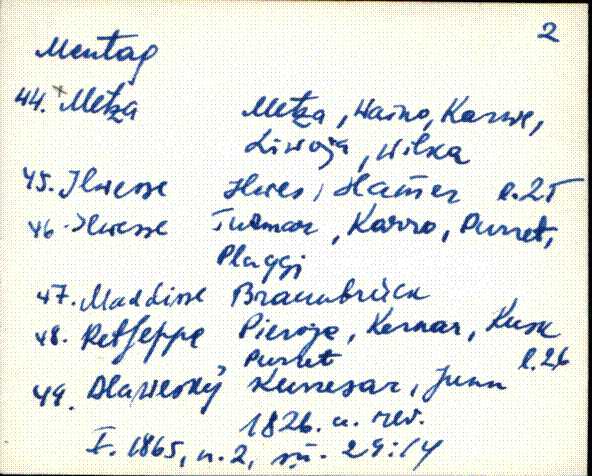 2
Mentag
44. Metza Metza, Waino, Karwe,
Liwoja, Wilka
45. Ilwesse Ilwes, Hamer l. 25
46. Ilwesse Tu Karro, Purret,
Plaggi
47. Maddisse Braunbrück
48. Retseppe Pieroja, Kernar, Kusk
Purret l. 26
49. Kurresar, Juun
1826. a. rev.
F. 1865, n. 2, sü. 29:14